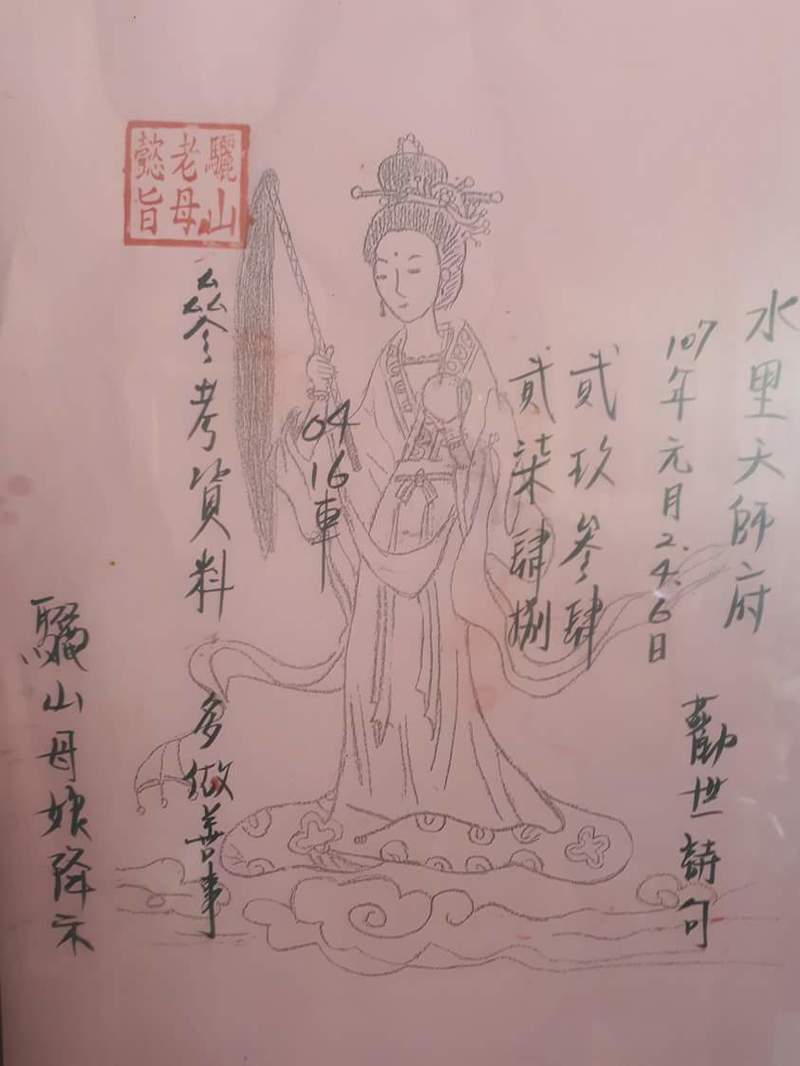 水里天師府
107年元月2.4.6日
勸世詩句
貳玖參肆
貳柒肆捌
04
16車
參考資料
多做善事
驪山母娘降示
驪山
老母
懿旨